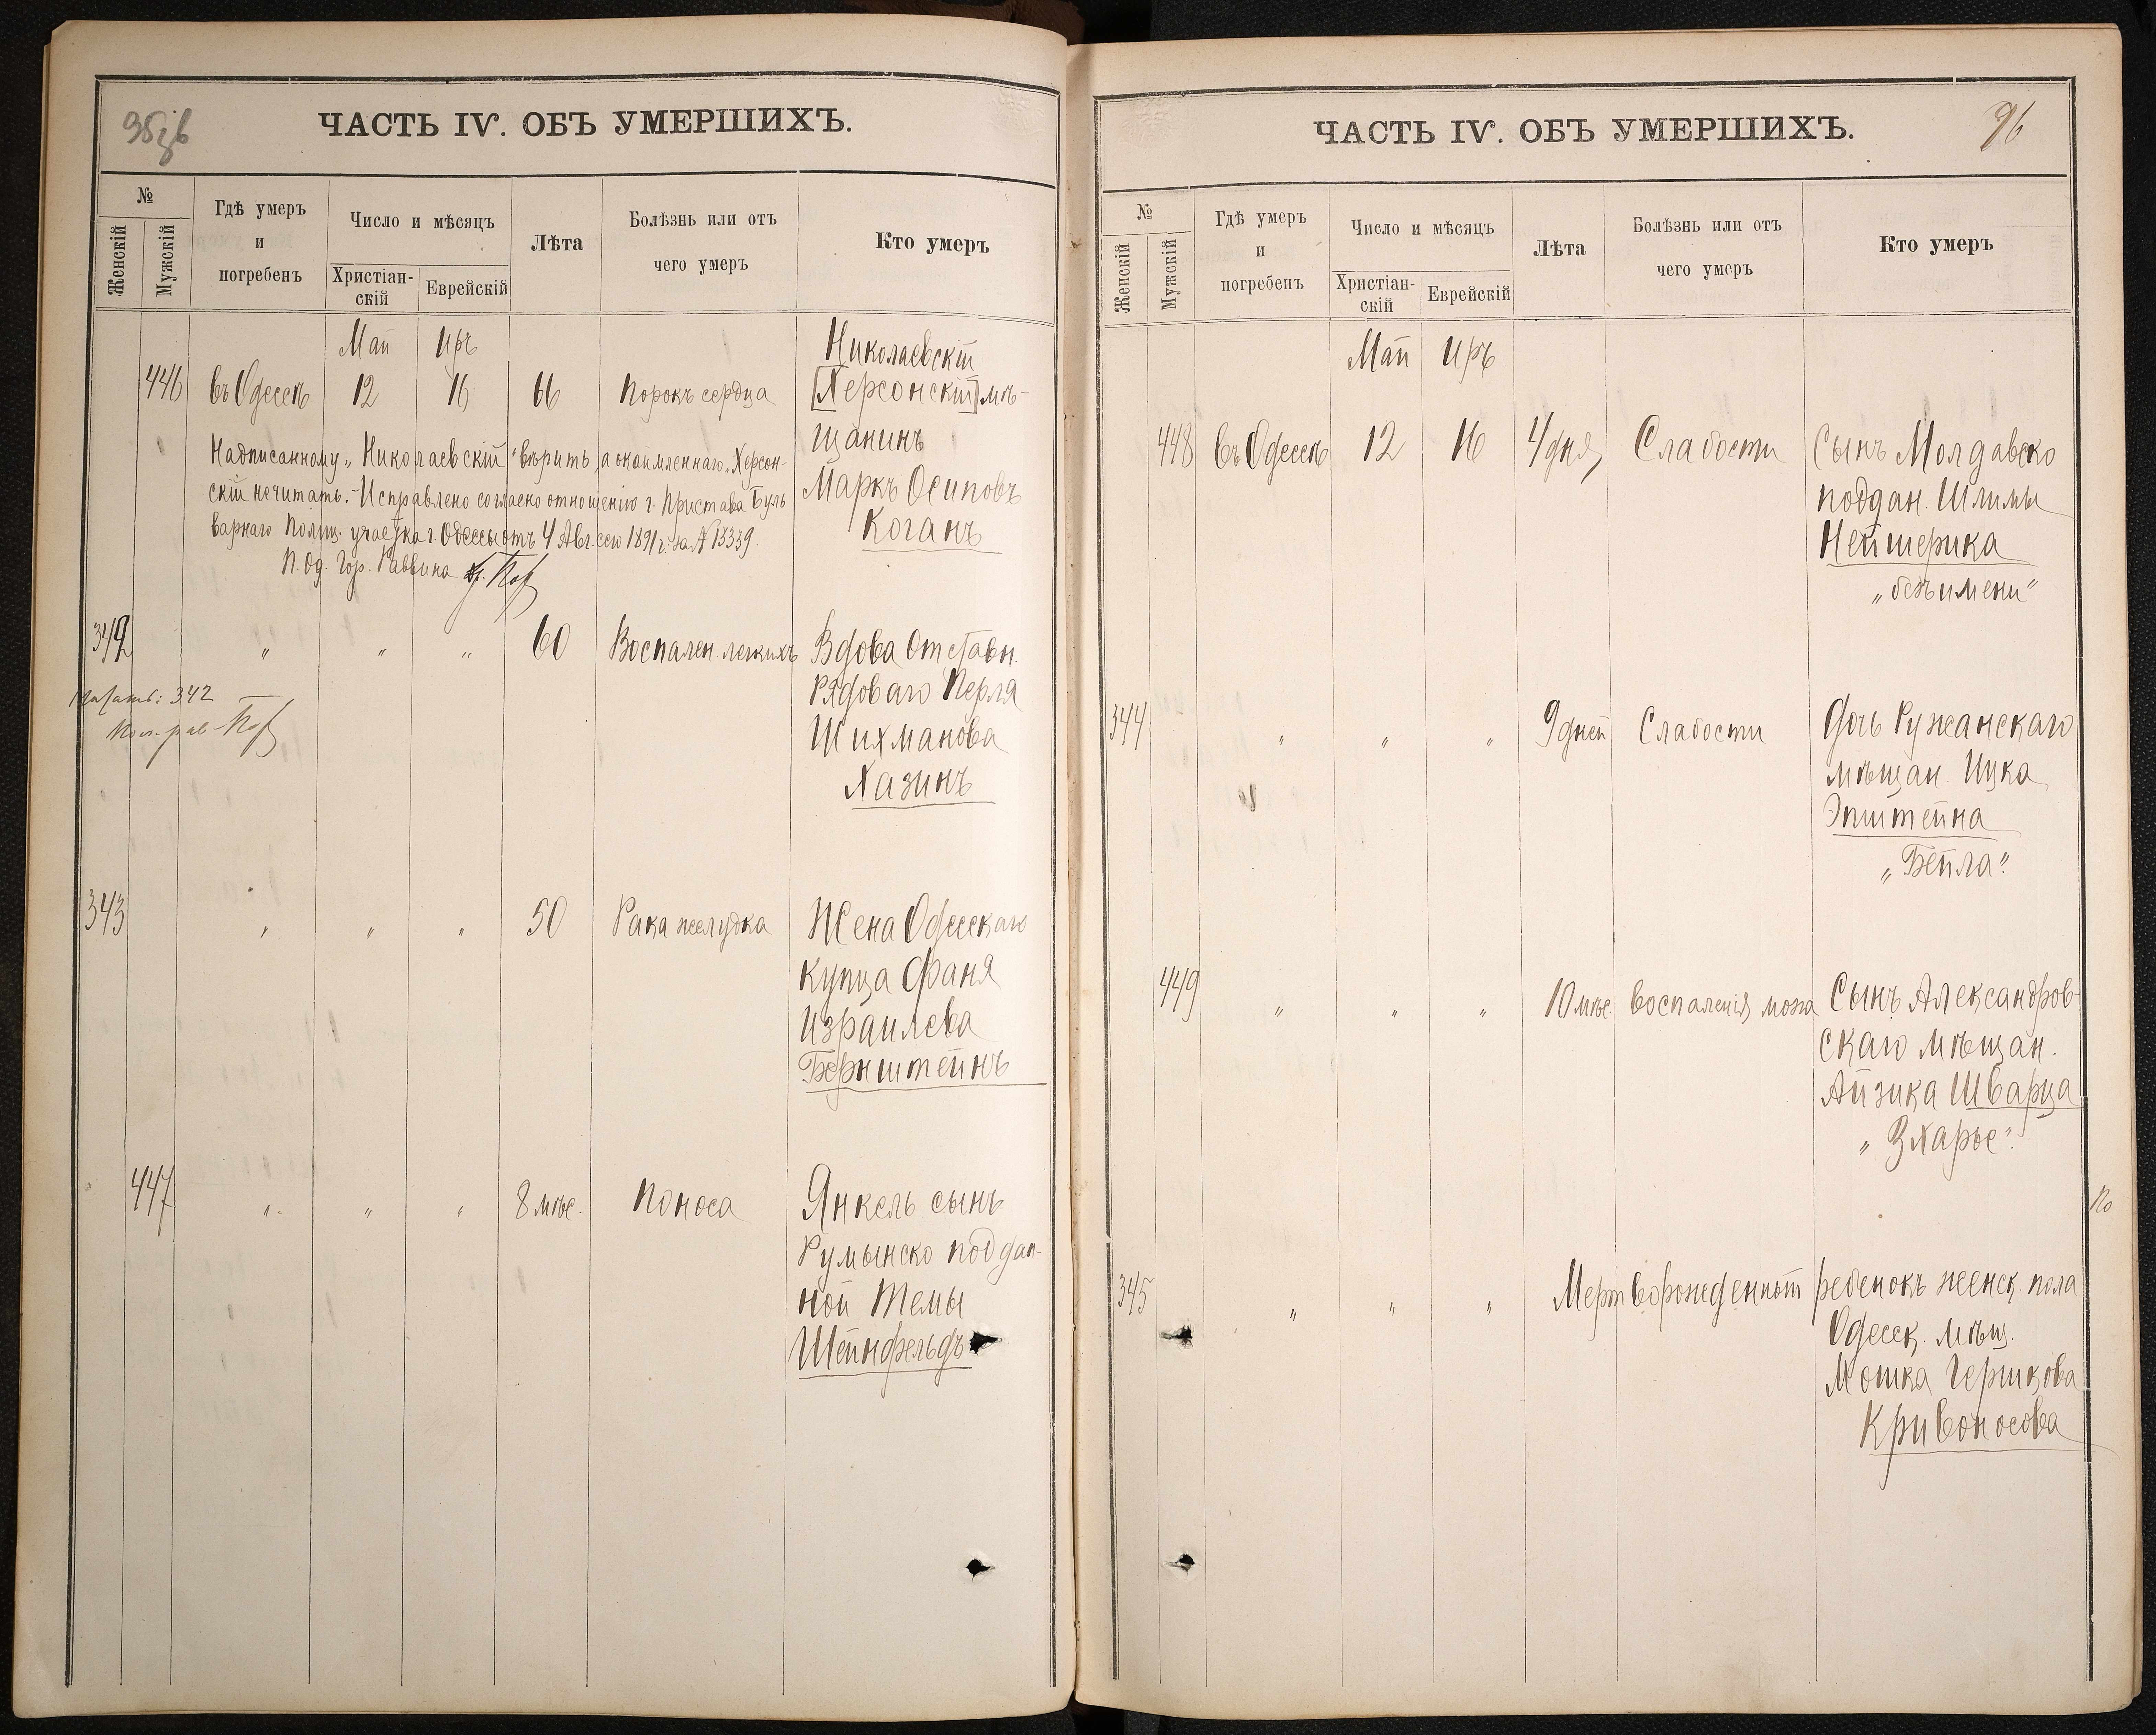 ЧАСТЬ IV. ОБЪ УМЕРШИХЪ.
№
Женскій
Мужскій
Гдѣ умеръ
и
погребенъ
Число и мѣсяцъ
Христіан-
скій
Еврейскій
Лѣта
Болѣзнь или отъ
чего умеръ
Кто умеръ
Май Иръ
446 въ Одессѣ 12 16 66 Порокъ сердца
Николаевскій
[Херсонскій] мѣ-
щанинъ
Маркъ Осиповъ
Коганъ
Надписанному „Николаевскій" вѣрить, а окаймленнаго „Херсон-
скій не читать. - Исправлено согласно отношенію г. Пристава Буль
варнаго Полиц. участка г. Одессы отъ 4 Авг. сего 1891 г. за № 13339.
И. Об. Гор. Раввина
342 „ „ „ 60 Воспален. легкихъ Вдова Отставн.
Рядоваго Перля
Шихманова
Хазинъ
Читать: 342
343 „ „ „ 50 Рака желудка Жена Одесскаго
купца Фаня
Израилева
Бернштейнъ
447 „ „ „ 8 мѣс. Поноса Янкель сынъ
Румынско поддан-
ной Темы
Шейнфельдъ
ЧАСТЬ IV. ОБЪ УМЕРШИХЪ.
96
№
Женскій
Мужскій
Гдѣ умеръ
и
погребенъ
Число и мѣсяцъ
Христіан-
скій
Еврейскій
Лѣта
Болѣзнь или отъ
чего умеръ
Кто умеръ
Май Иръ
448 въ Одессѣ 12 16 4 дня Слабости Сынъ Молдавско
поддан. Шлимы
Нейшерика
„безъ имени"
344 „ „ „ 9 дней Слабости Дочь Ружанскаго
мѣщан. Ицка
Эпштейна
„Бейла"
449 „ „ „ 10 мѣс. воспаленія мозга Сынъ Александров-
скаго мѣщан.
Айзика Шварца
„Зхарье"
345 „ „ „ Мертворожденный ребенокъ женск. пола
Одесск. мѣщ.
Мошка Гершкова
Кривоносова